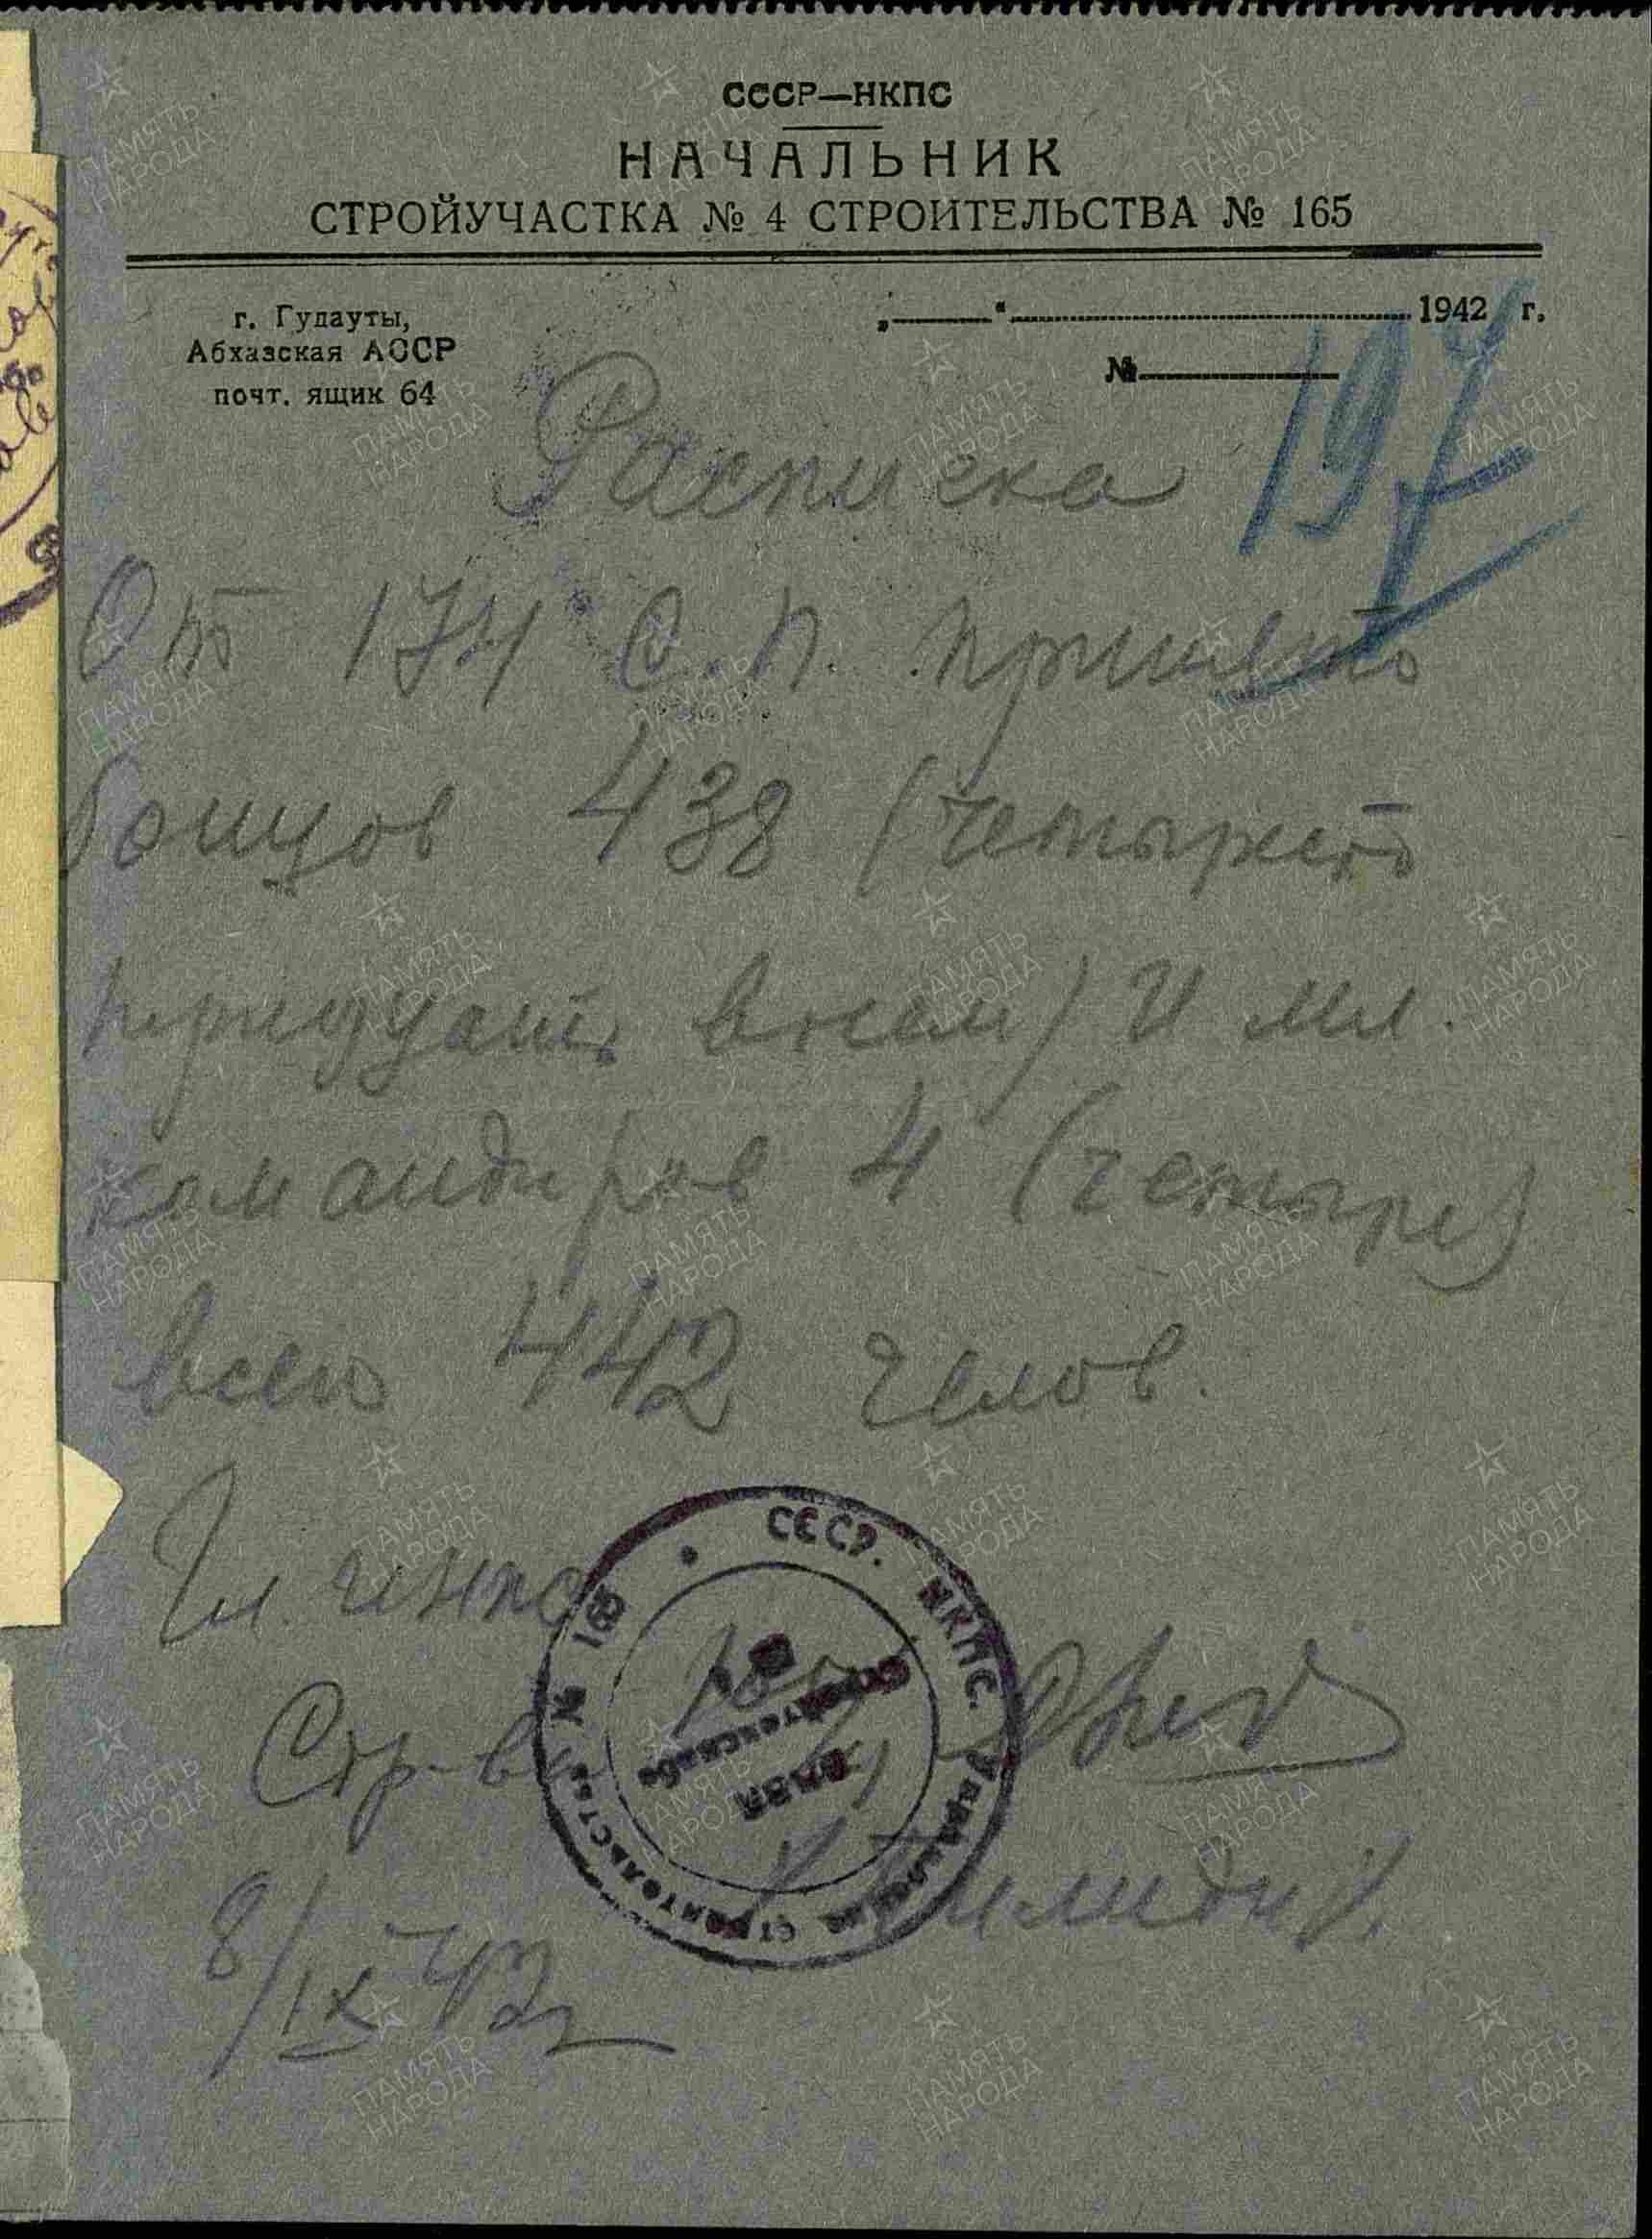 СССР—НКПС
НАЧАЛЬНИК
СТРОЙУЧАСТКА № 4 СТРОИТЕЛЬСТВА № 165
г. Гудауты,
Абхазская АССР
почт. ящик 64
„ “ 1942 г.
№
197
Расписка
От 174 С.П. принято
бойцов 438 (четыреста
тридцать восем) и мл.
командиров 4 (четыре)
всего 442 челов.
Гл. инж
Стр-ва
8/IX 42г
СССР. НКПС. Управление строительства № 165
ПАМЯТЬ НАРОДА